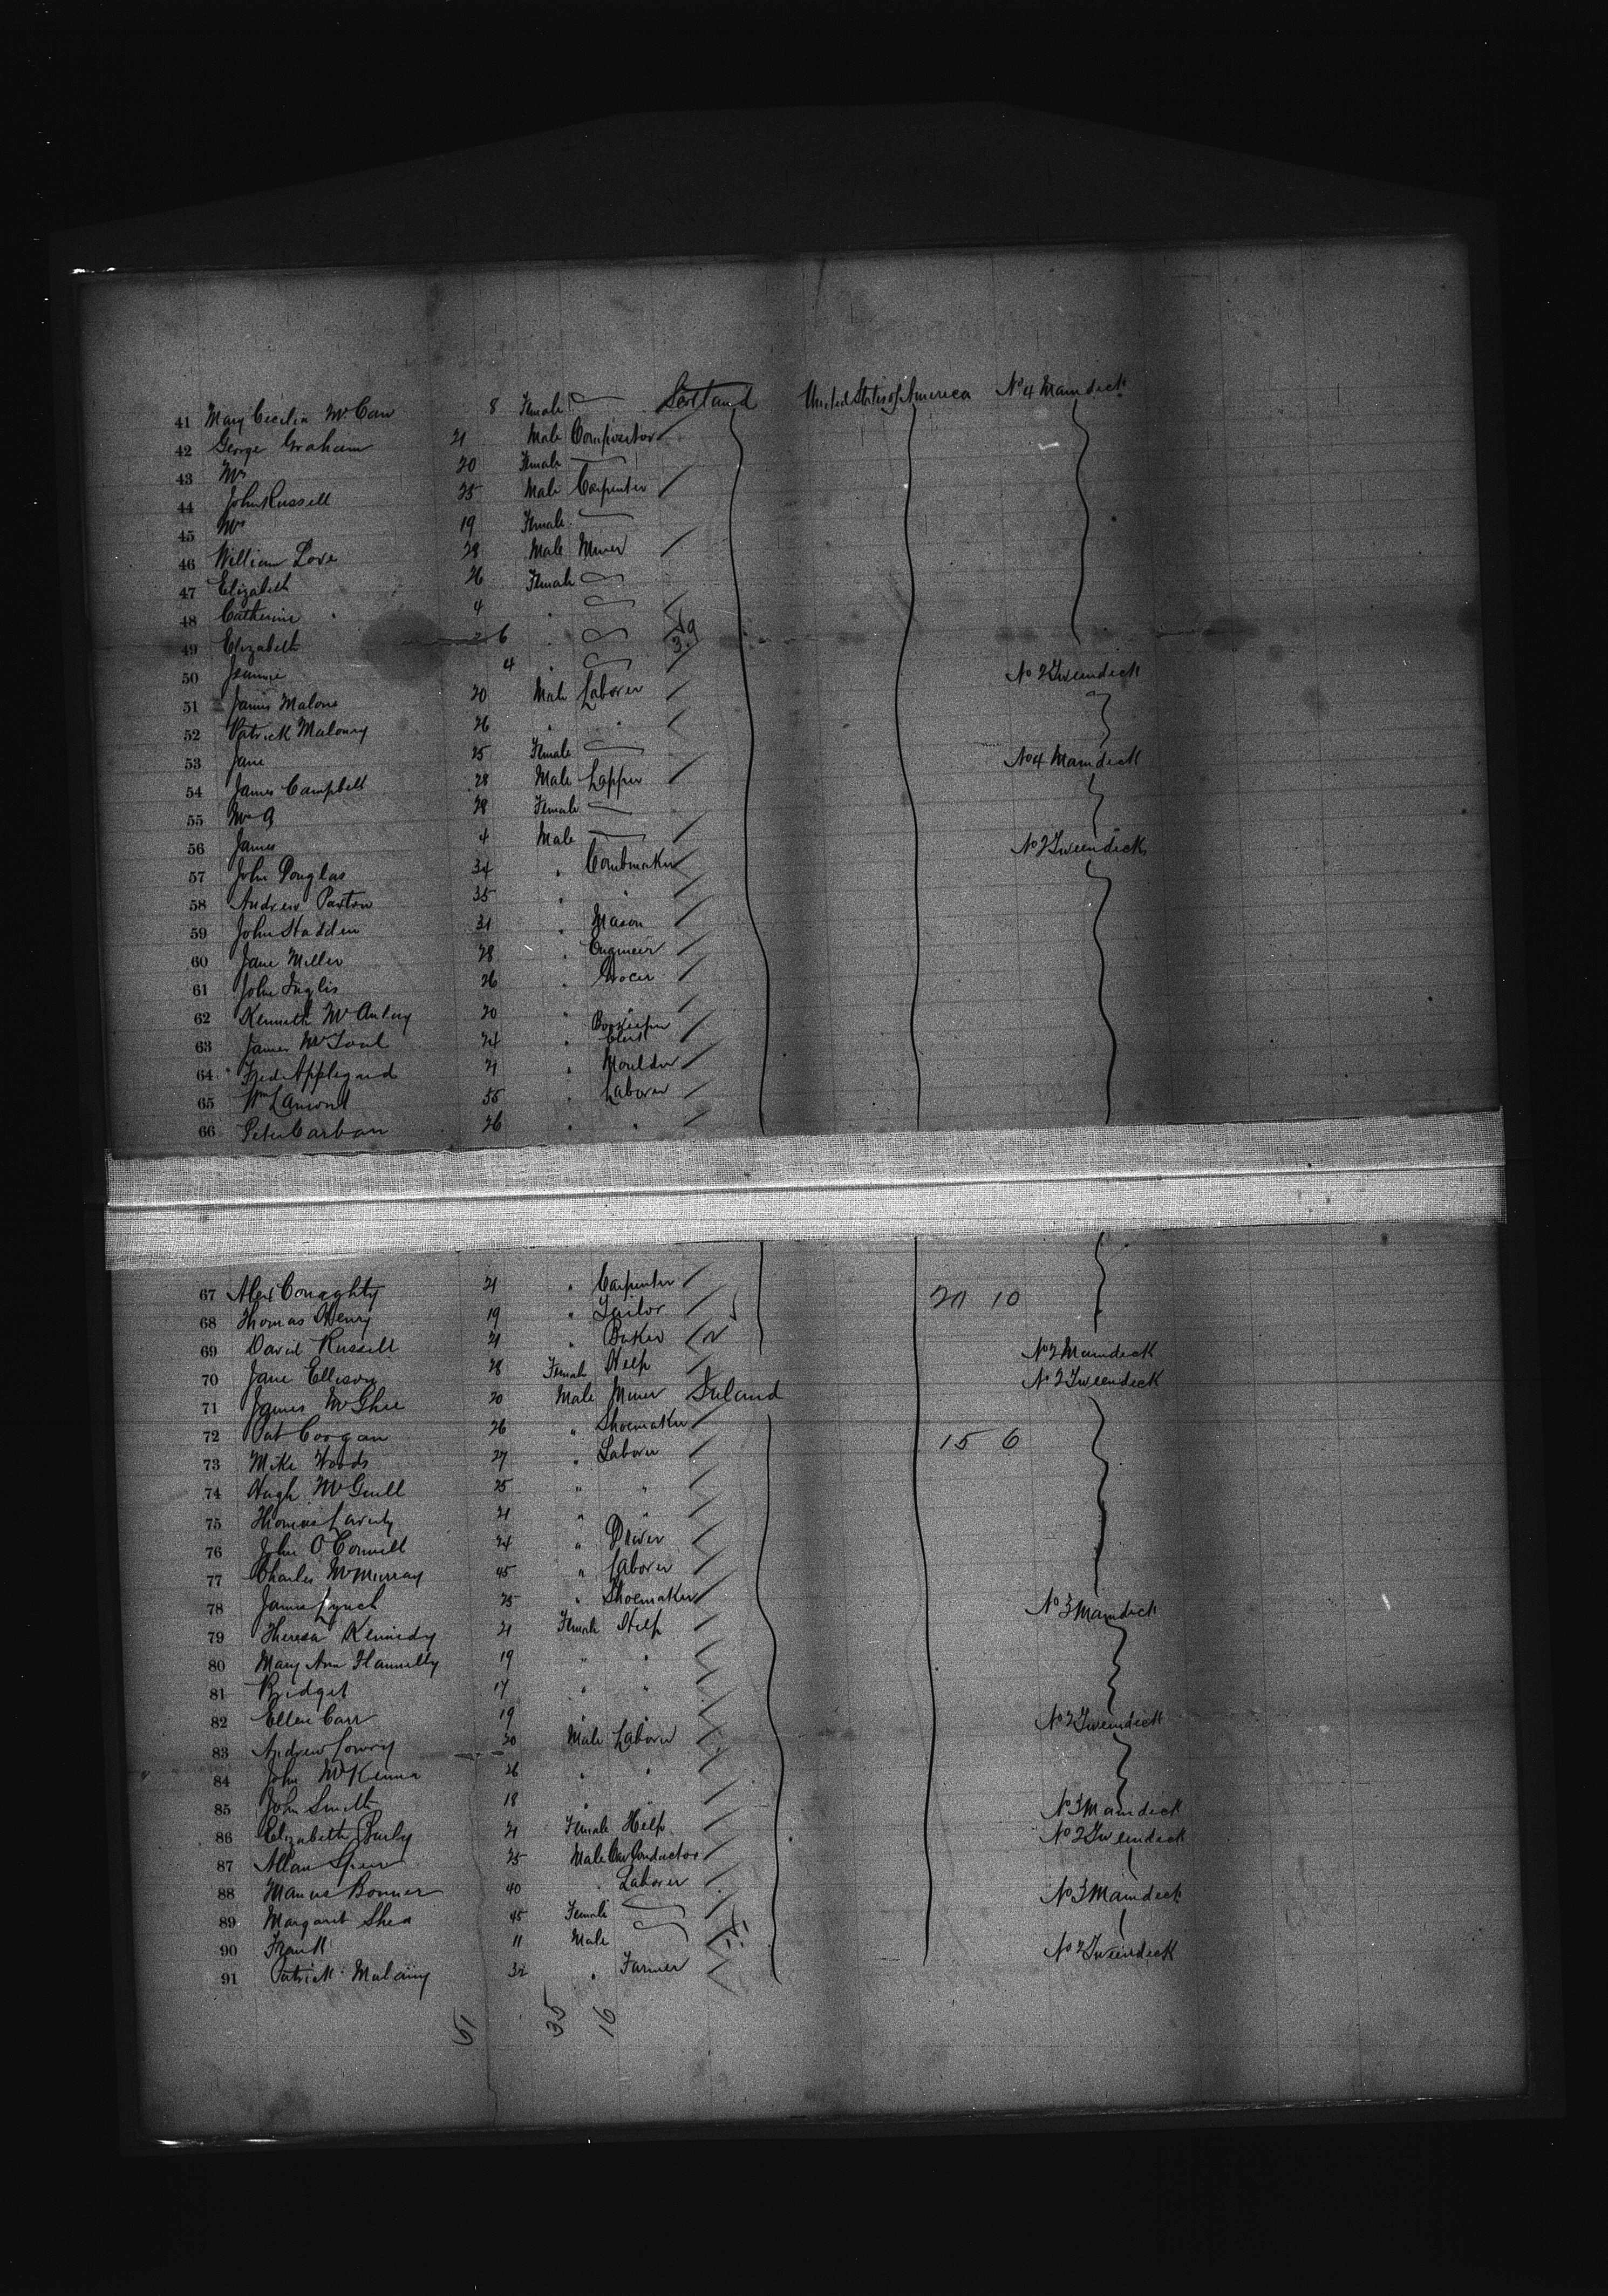 41 Mary Cecilia McCann 8 Female Scotland United States of America No 4 Maindeck
42 George Graham 21 Male Compositor
43 Mrs 20 Female
44 John Russell 25 Male Carpenter
45 Mrs 19 Female
46 William Love 28 Male Miner
47 Elizabeth 26 Female
48 Catherine 4 "
49 Elizabeth 2 6 "
50 Jeannie 4 " No 2 Tweendeck
51 James Malone 20 Male Laborer
52 Patrick Malouny 26 " "
53 Jane 25 Female No 4 Maindeck
54 James Campbell 28 Male Lapper
55 Mrs 28 Female
56 James 4 Male No 2 Tweendeck
57 John Douglas 34 " Combmaker
58 Andrew Paxton 35 " "
59 John Hadden 31 " Mason
60 Jane Miller 28 " Engineer
61 John Inglis 26 " Grocer
62 Kenneth McAulay 20 " "
63 James McFoul 24 " Bookkeeper Clerk
64 Fred Appleyard 21 " Moulder
65 Wm Lamont 55 " Laborer
66 Peter Carban 26 " "
67 Alex Conaghty 21 " Carpenter
68 Thomas Henry 19 " Tailor 20 10
69 David Russell 21 " Baker No 2 Maindeck
70 Jane Ellison 28 Female Help No 2 Tweendeck
71 James McGhee 20 Male Miner Ireland
72 Pat Coogan 26 " Shoemaker
73 Mike Woods 27 " Laborer 15 6
74 Hugh McGuill 25 " "
75 Thomas Laverty 21 " "
76 John O'Connell 24 " Drover
77 Charles McMurray 45 " Laborer
78 James Lynch 25 " Shoemaker No 3 Maindeck
79 Theresa Kennedy 21 Female Help
80 Mary Ann Flannelly 19 " "
81 Bridget 17 " "
82 Ellen Carr 19 " " No 2 Tweendeck
83 Andrew Lowry 20 Male Laborer
84 John McKenna 26 " "
85 John Smith 18 " " No 3 Maindeck
86 Elizabeth 21 Female Help No 2 Tweendeck
87 Allan Speir 25 Male Car Conductor
88 Manus Bonner 40 " Laborer No 3 Maindeck
89 Margaret Shea 45 Female
90 Frank 11 Male No 2 Tweendeck
91 Patrick Mulainy 32 " Farmer
51 35 16